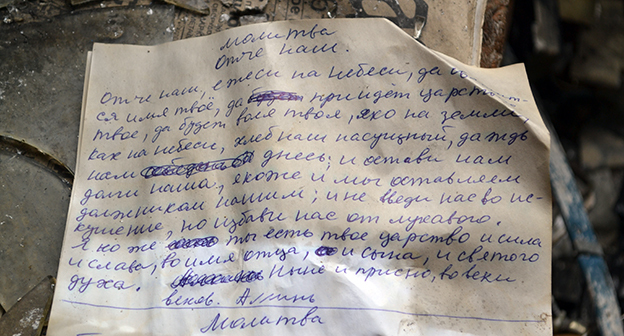 Молитва
Отче наш.
Отче наш, ежеси на небеси, да и
ся имя твоё, да прийдёт царст
твое, да будет воля твоя, яко на земли,
как на небеси, хлеб наш насущный, даждь
нам днесь; и остави нам
долги наша, якоже и мы оставляем
должникам нашим; и не введи нас во ис-
кушение, но избави нас от лукавого.
Я ко же ты есть твое царство и сила
и слава, во имя отца, и сына, и святого
духа. Ныне и присно, во веки
веков. Аминь
Молитва